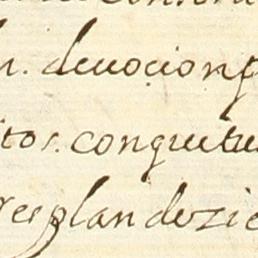 n. deuocion p
itos. conquetu
resplandezie